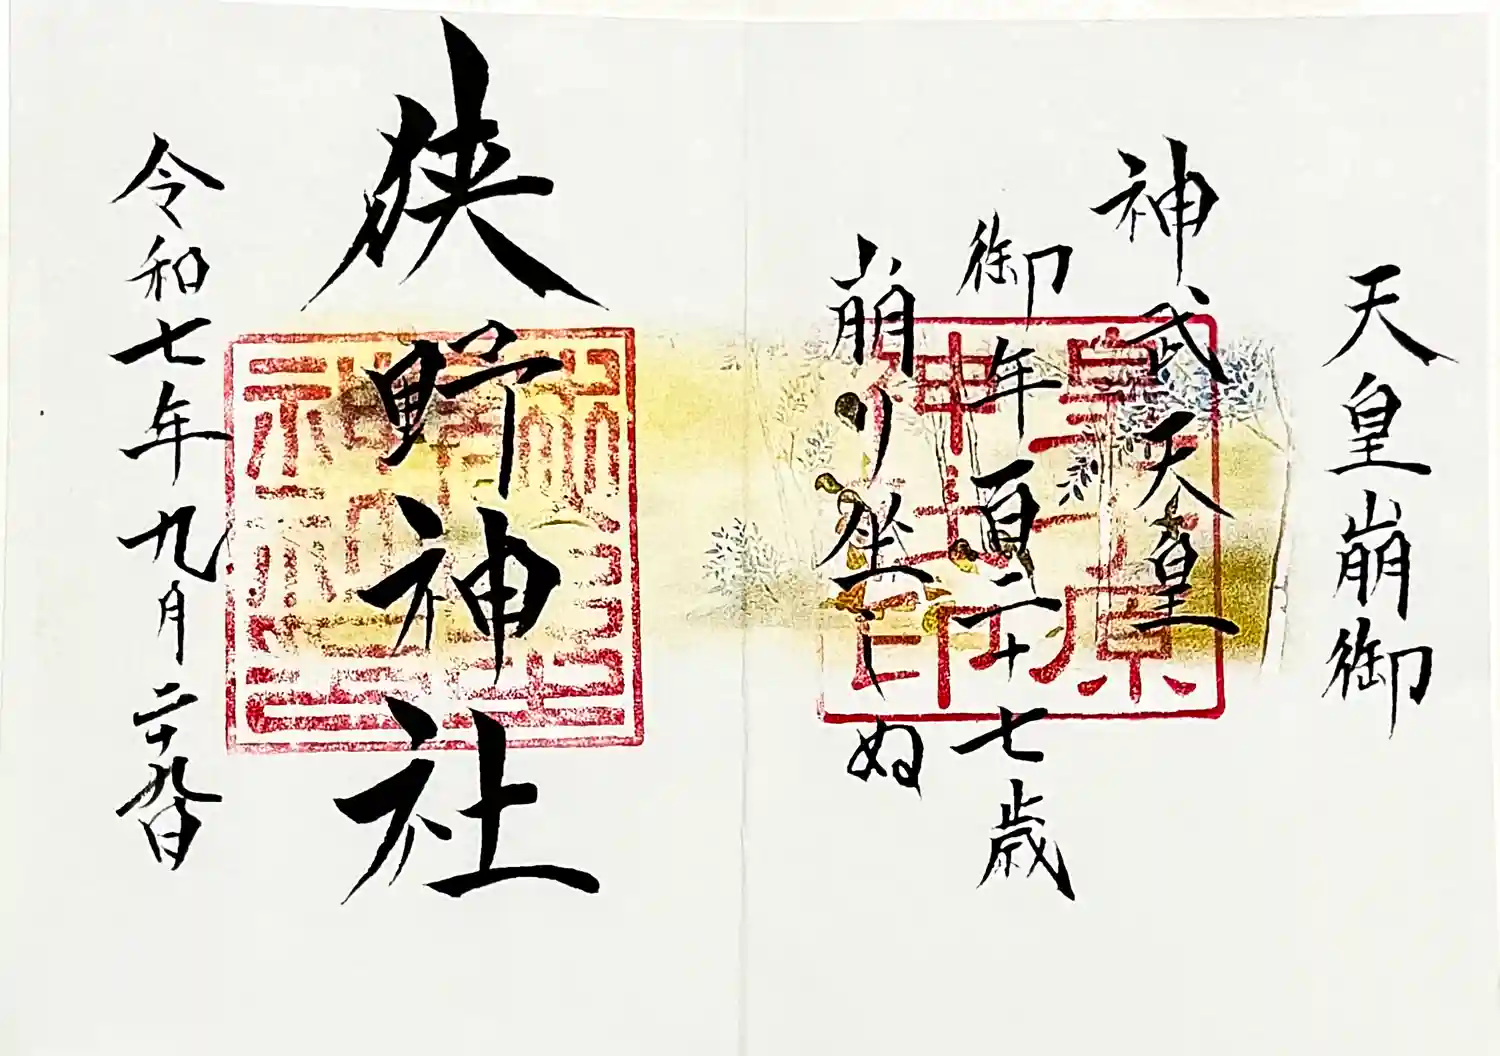 天皇崩御
神武天皇
御年百二十七歳
崩り坐しぬ
狭野神社
令和七年九月二十九日